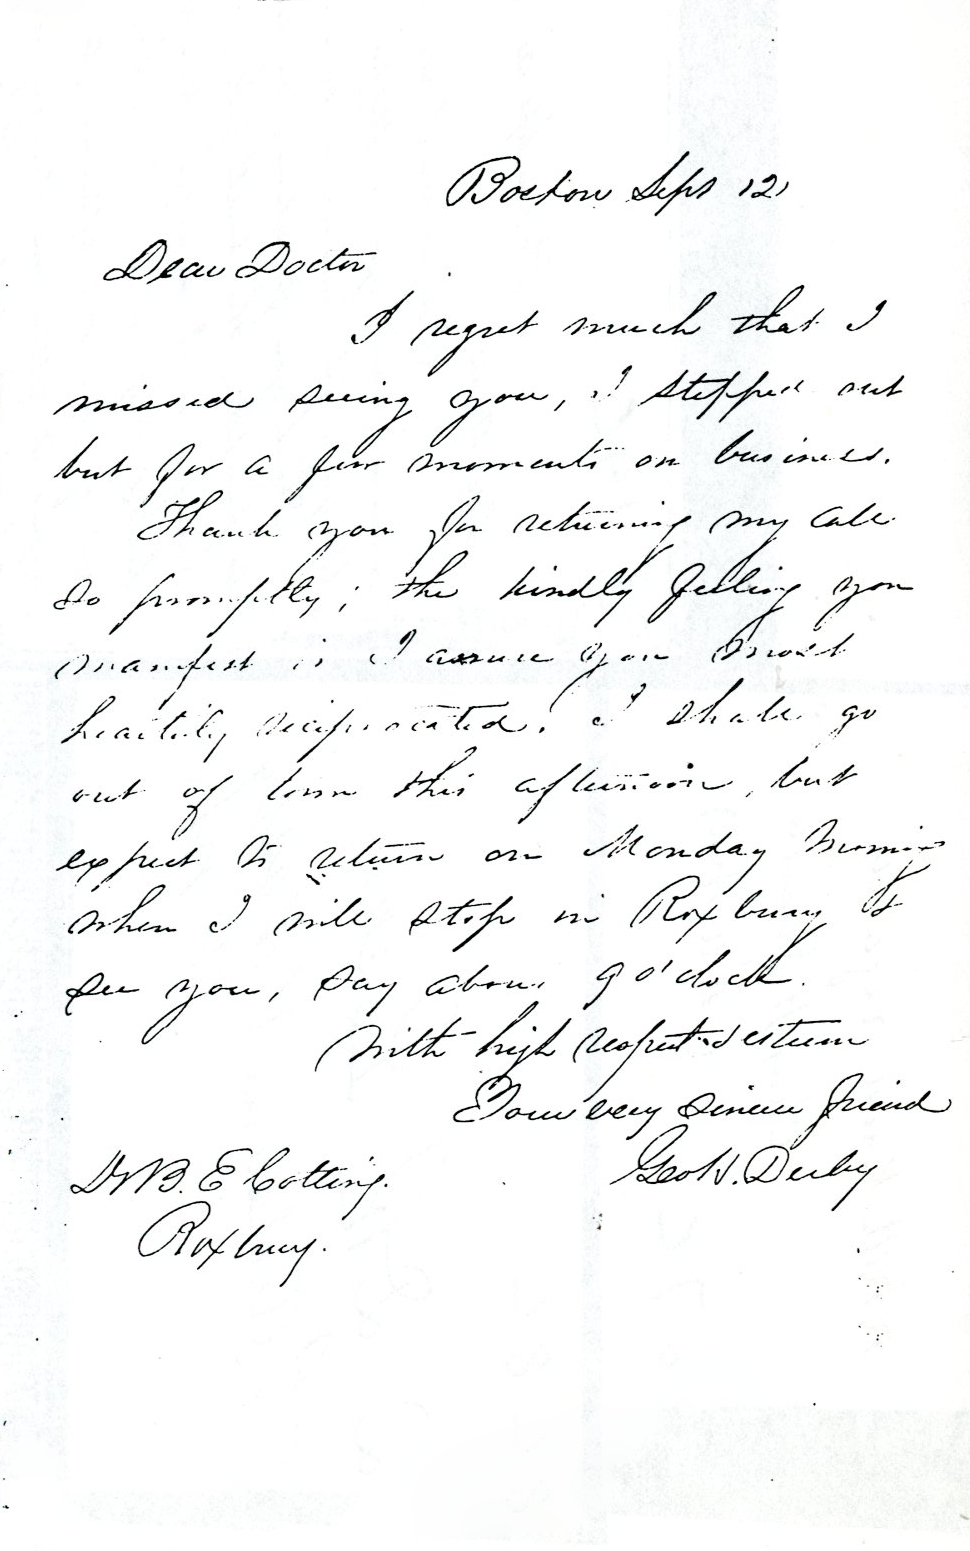 Boston Sept 12,
Dear Doctor
I regret much that I
missed seeing you, I stepped out
but for a few moments on business.
Thank you for returning my call
so promptly; the kindly feeling you
manifest is I assure you most
heartily reciprocated. I shall go
out of town this afternoon, but
expect to return on Monday morning
when I will stop in Roxbury &
see you, say about 9 o'clock.
With high respect & esteem
Your very sincere friend
Geo H. Derby
Dr B. E Cotting.
Roxbury.